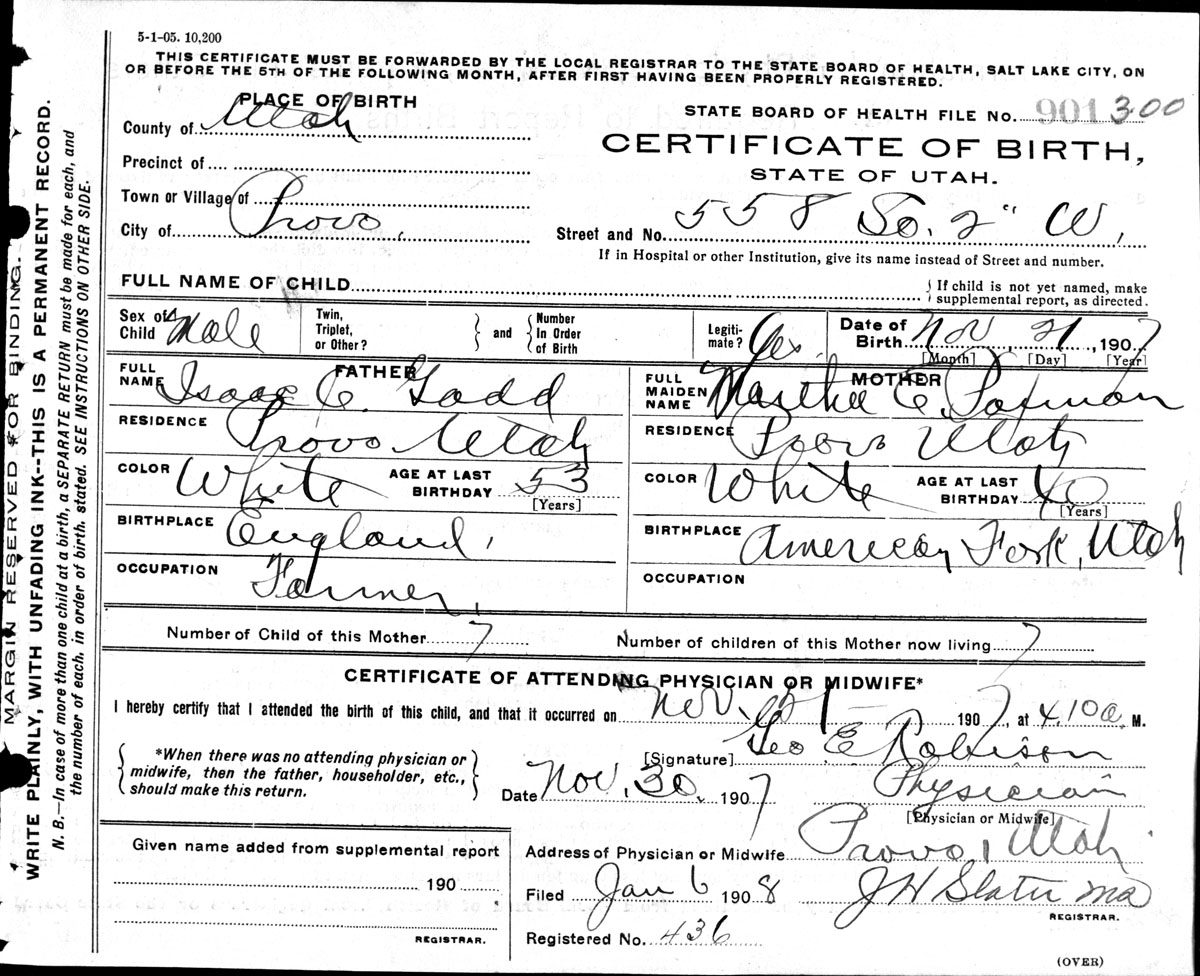 5-1-05. 10,200
THIS CERTIFICATE MUST BE FORWARDED BY THE LOCAL REGISTRAR TO THE STATE BOARD OF HEALTH, SALT LAKE CITY, ON
OR BEFORE THE 5TH OF THE FOLLOWING MONTH, AFTER FIRST HAVING BEEN PROPERLY REGISTERED.
PLACE OF BIRTH
STATE BOARD OF HEALTH FILE NO. 901300
County of Utah
CERTIFICATE OF BIRTH,
Precinct of
STATE OF UTAH.
Town or Village of
City of Provo,
Street and No. 558 So. 2" W,
If in Hospital or other Institution, give its name instead of Street and number.
FULL NAME OF CHILD
{ If child is not yet named, make
supplemental report, as directed.
Sex of Child Male
Twin, Triplet, or Other? } and { Number In Order of Birth
Legitimate? Yes.
Date of Birth Nov, 21, 1907
[Month] [Day] [Year]
FATHER
FULL NAME Isaac C. Gadd
RESIDENCE Provo Utah
COLOR White AGE AT LAST BIRTHDAY 53
[Years]
BIRTHPLACE England,
OCCUPATION Farmer,
MOTHER
FULL MAIDEN NAME Martha E.
RESIDENCE Provo Utah
COLOR White AGE AT LAST BIRTHDAY 40
[Years]
BIRTHPLACE American Fork, Utah
OCCUPATION
Number of Child of this Mother 7
Number of children of this Mother now living 7
CERTIFICATE OF ATTENDING PHYSICIAN OR MIDWIFE*
I hereby certify that I attended the birth of this child, and that it occurred on Nov. 21 1907, at 4.10 a. M.
{ *When there was no attending physician or
midwife, then the father, householder, etc.,
should make this return. }
[Signature] Geo E Robison
Date Nov. 30, 1907 Physician
[Physician or Midwife]
Given name added from supplemental report
190
REGISTRAR.
Address of Physician or Midwife Provo, Utah
Filed Jan 6 1908 J H Slater MD
REGISTRAR.
Registered No. 436
(OVER)
MARGIN RESERVED FOR BINDING.
WRITE PLAINLY, WITH UNFADING INK--THIS IS A PERMANENT RECORD.
N. B.—In case of more than one child at a birth, a SEPARATE RETURN must be made for each, and
the number of each, in order of birth, stated. SEE INSTRUCTIONS ON OTHER SIDE.